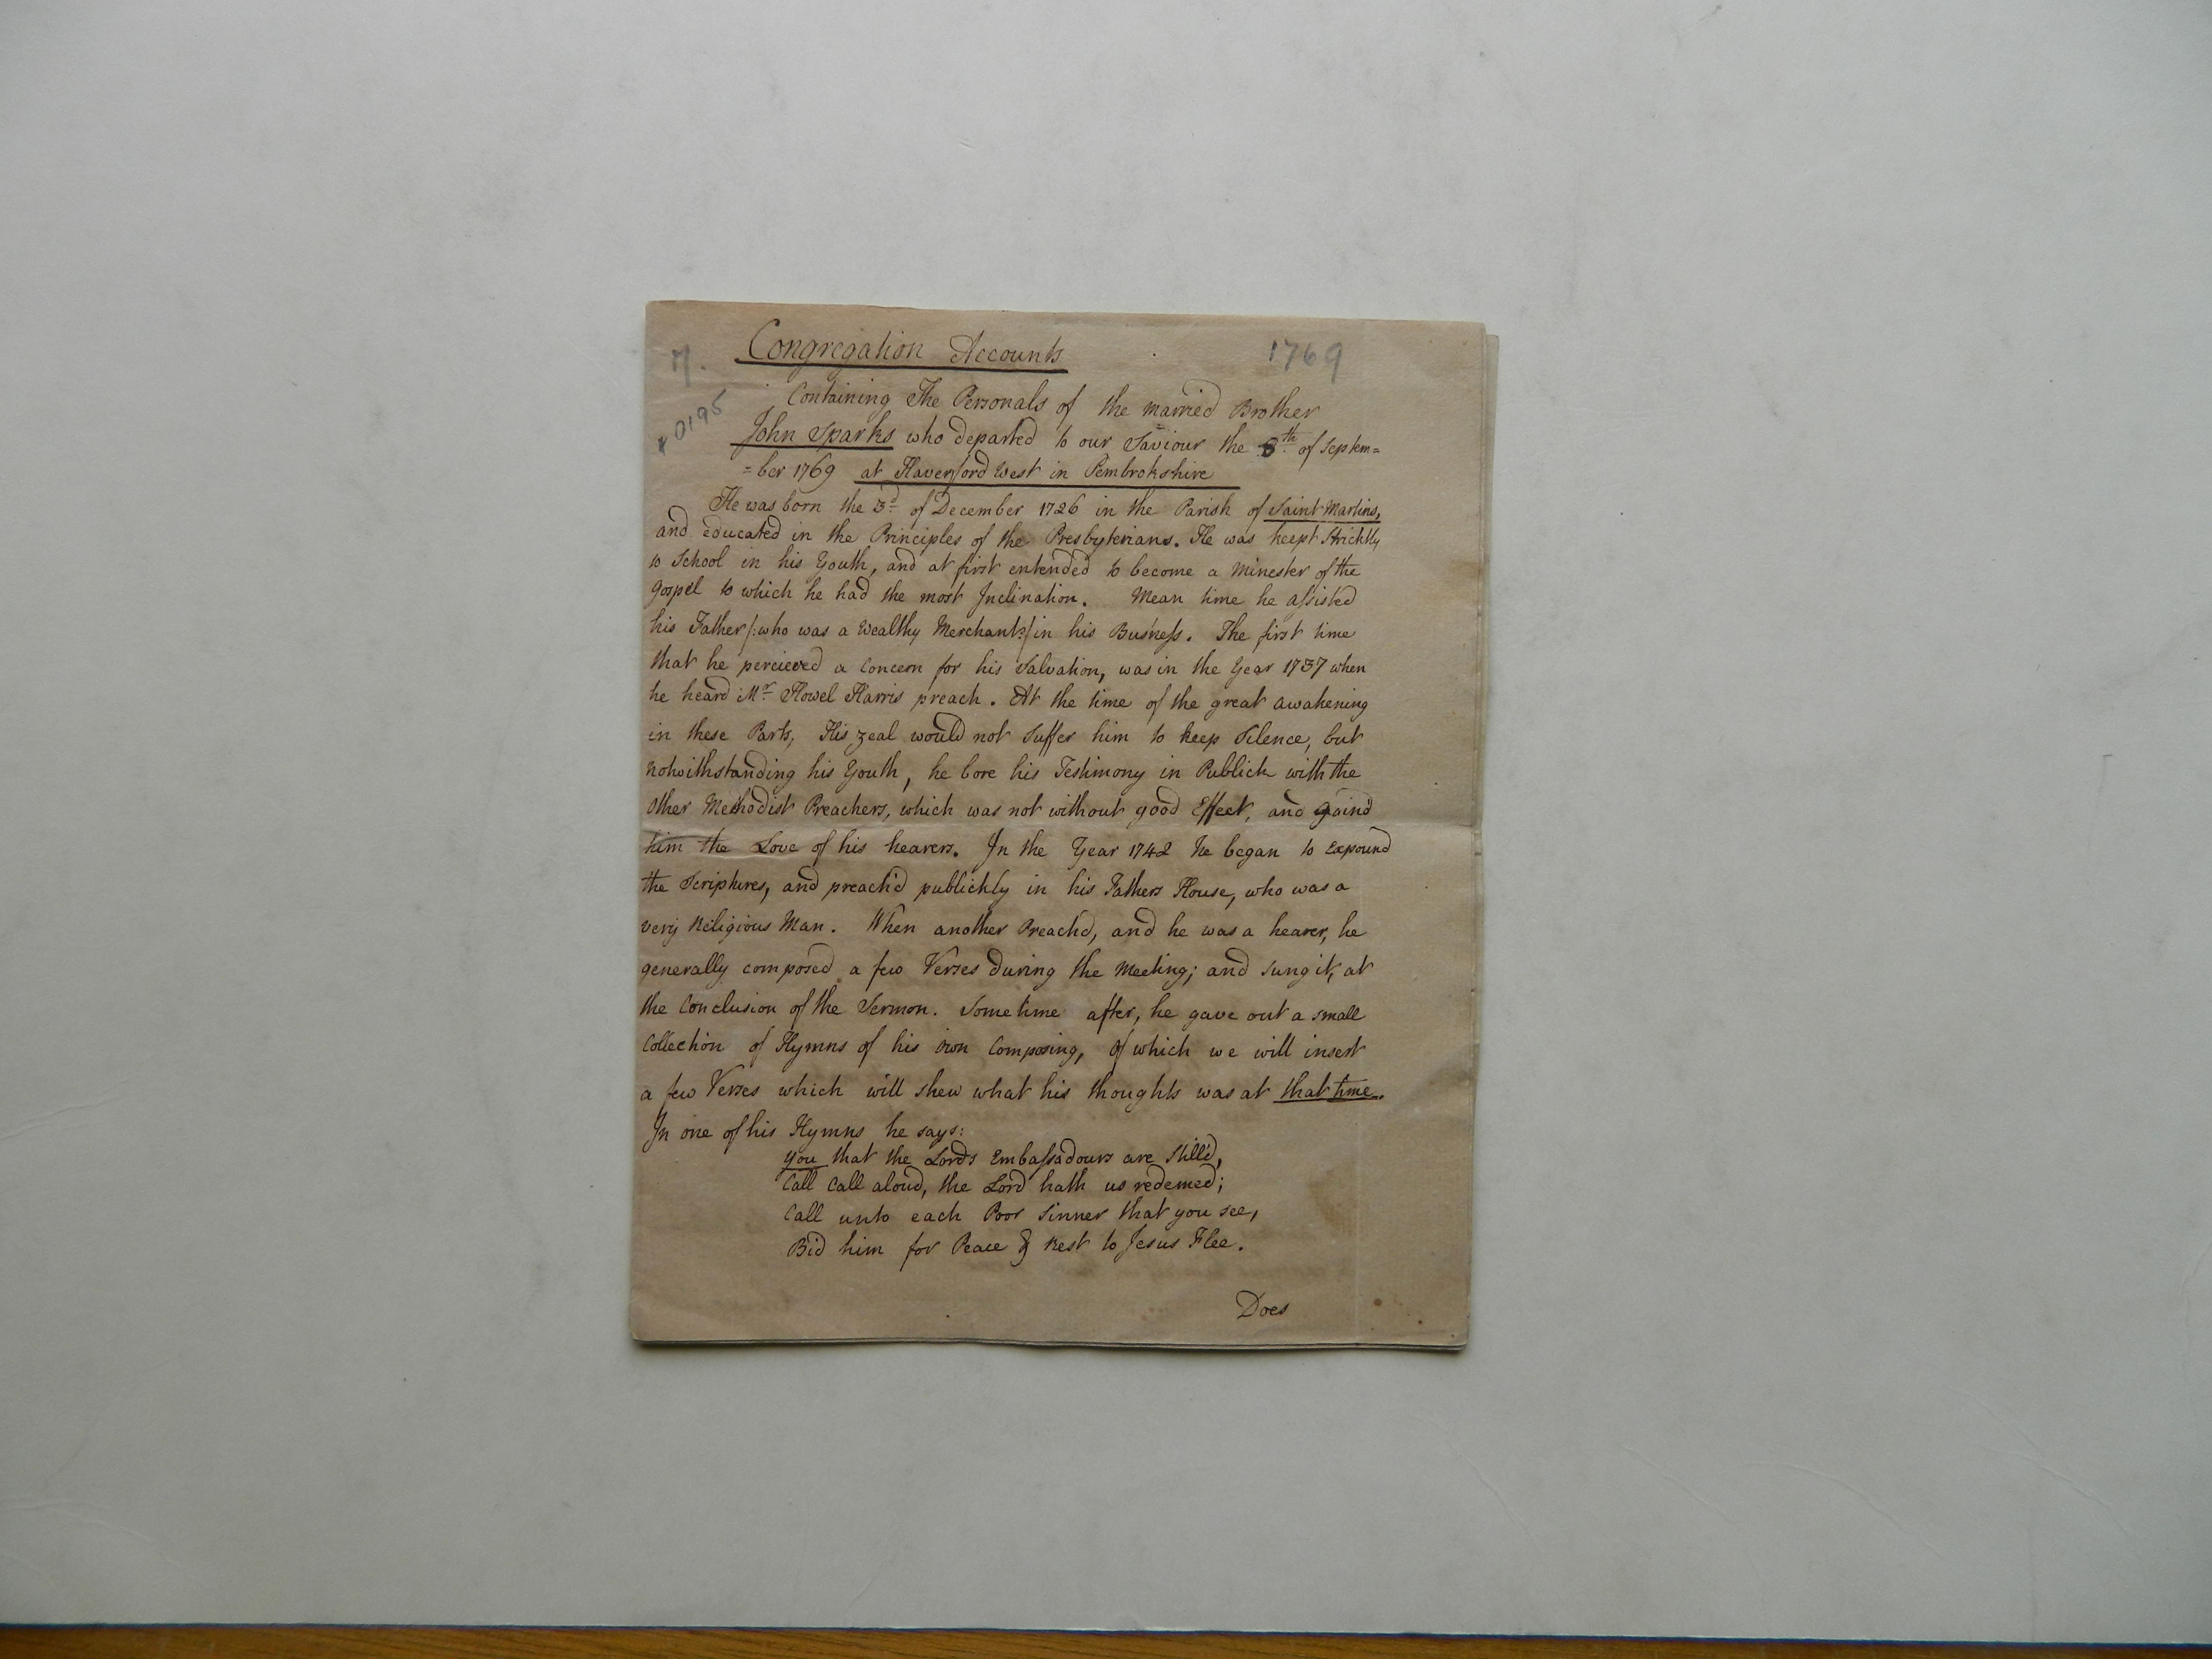 7.
Congregation Accounts
1769
x 0195
Containing The Personals of the married Brother
John Sparks who departed to our Saviour the 8th of Septem=
=ber 1769 at Haverford West in Pembrokshire
He was born the 3d of December 1726 in the Parish of Saint Martins,
and educated in the Principles of the Presbyterians. He was keept Stricktly
to School in his Youth, and at first entended to become a Minester of the
Gospel to which he had the most Inclination. Mean time he assisted
his Father /: who was a Wealthy Merchant :/ in his Business. The first time
that he percieved a Concern for his Salvation, was in the Year 1737 when
he heard Mr Howel Harris preach. At the time of the great awakening
in these Parts, His zeal would not suffer him to keep Silence, but
notwithstanding his Youth, he bore his Testimony in Publick with the
other Methodist Preachers, which was not without good Effect, and gain'd
him the Love of his hearers. In the Year 1742 he began to Expound
the Scriptures, and preach'd publickly in his Fathers House, who was a
very Religious Man. When another Preach'd, and he was a hearer, he
generally composed a few Verses During the Meeting; and sung it, at
the Conclusion of the Sermon. Sometime after, he gave out a small
Collection of Hymns of his own Composing, of which we will insert
a few Verses which will shew what his thoughts was at that time.
In one of his Hymns he says:
You that the Lords Embassadours are Still'd,
Call Call aloud, the Lord hath us redemed;
Call unto each Poor Sinner that you see,
Bid him for Peace & Rest to Jesus Flee.
Does